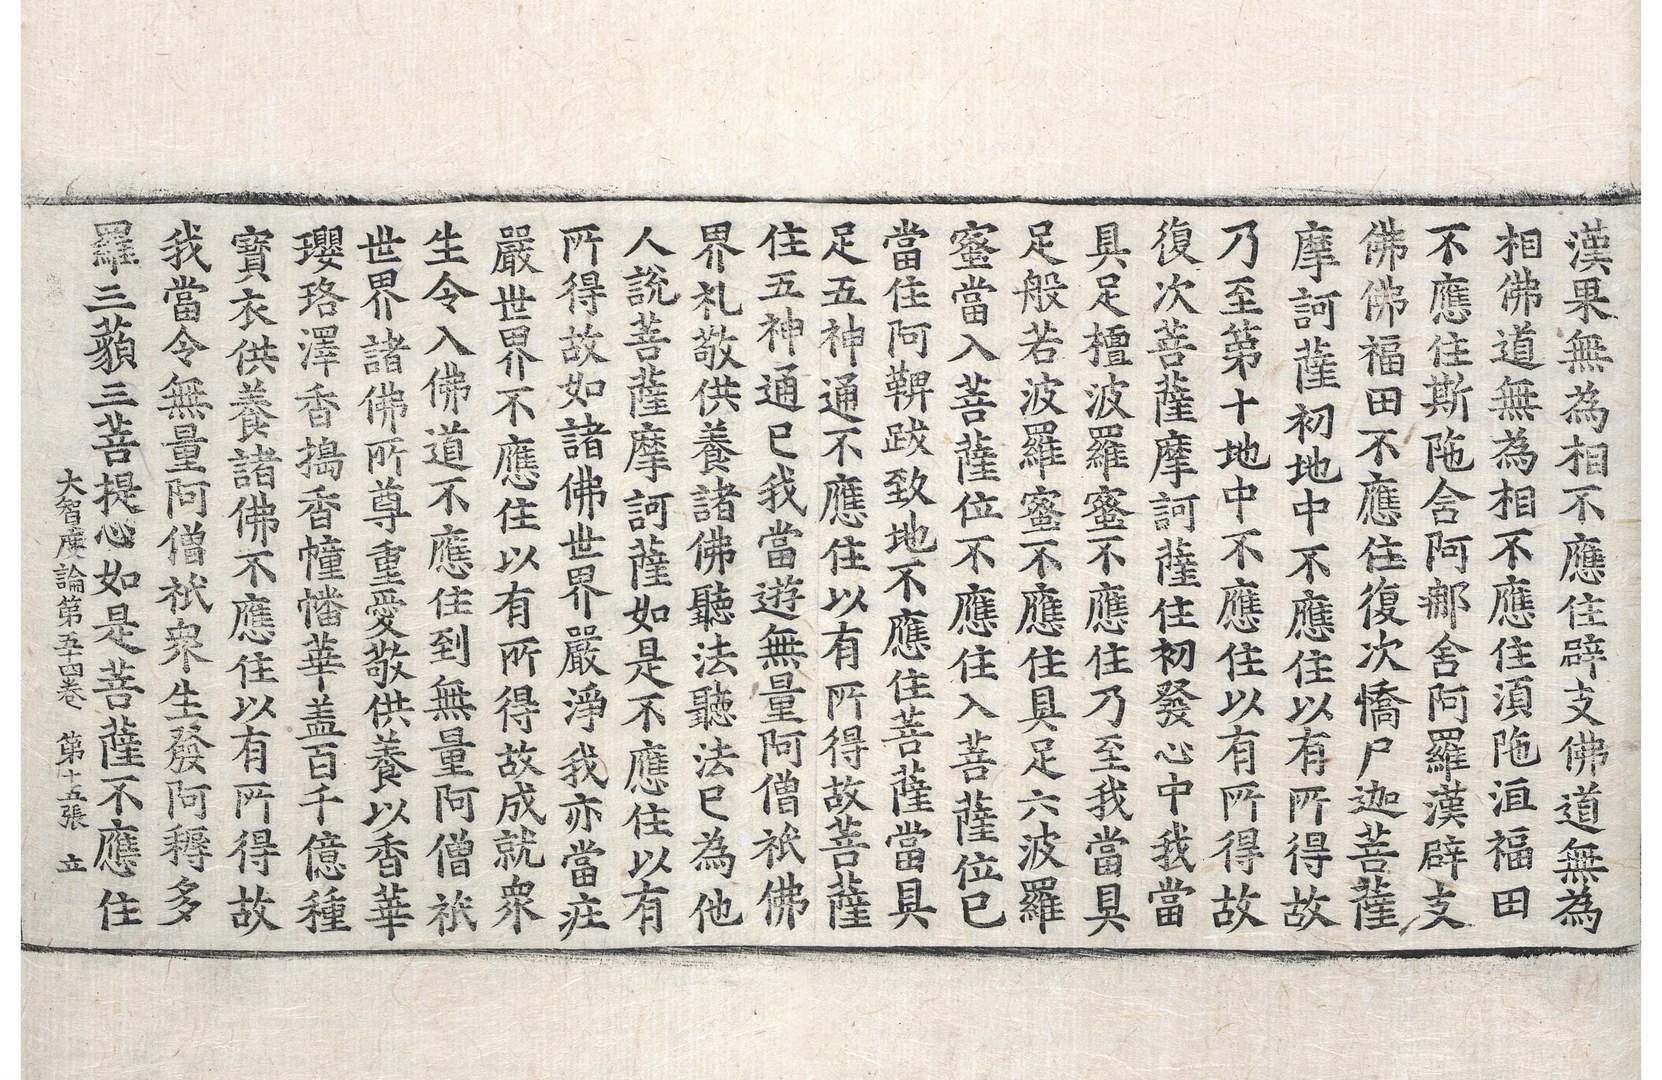 漢果無為相不應住辟支佛道無為
相佛道無為相不應住湏陁洹福田
不應住斯陁含阿那含阿羅漢辟支
佛佛福田不應住復次憍尸迦菩薩
摩訶薩初地中不應住以有所得故
乃至第十地中不應住以有所得故
復次菩薩摩訶薩住初發心中我當
具足檀波羅蜜不應住乃至我當具
足般若波羅蜜不應住具足六波羅
蜜當入菩薩位不應住入菩薩位已
當住阿鞞跋致地不應住菩薩當具
足五神通不應住以有所得故菩薩
住五神通已我當遊無量阿僧祇佛
界礼敬供養諸佛聽法聽法已為他
人說菩薩摩訶薩如是不應住以有
所得故如諸佛世界嚴淨我亦當莊
嚴世界不應住以有所得故成就衆
生令入佛道不應住到無量阿僧祇
世界諸佛所尊重愛敬供養以香華
瓔珞澤香搗香幢幡華盖百千億種
寶衣供養諸佛不應住以有所得故
我當令無量阿僧祇衆生發阿耨多
羅三藐三菩提心如是菩薩不應住
大智度論第五十四卷　第十五張　立